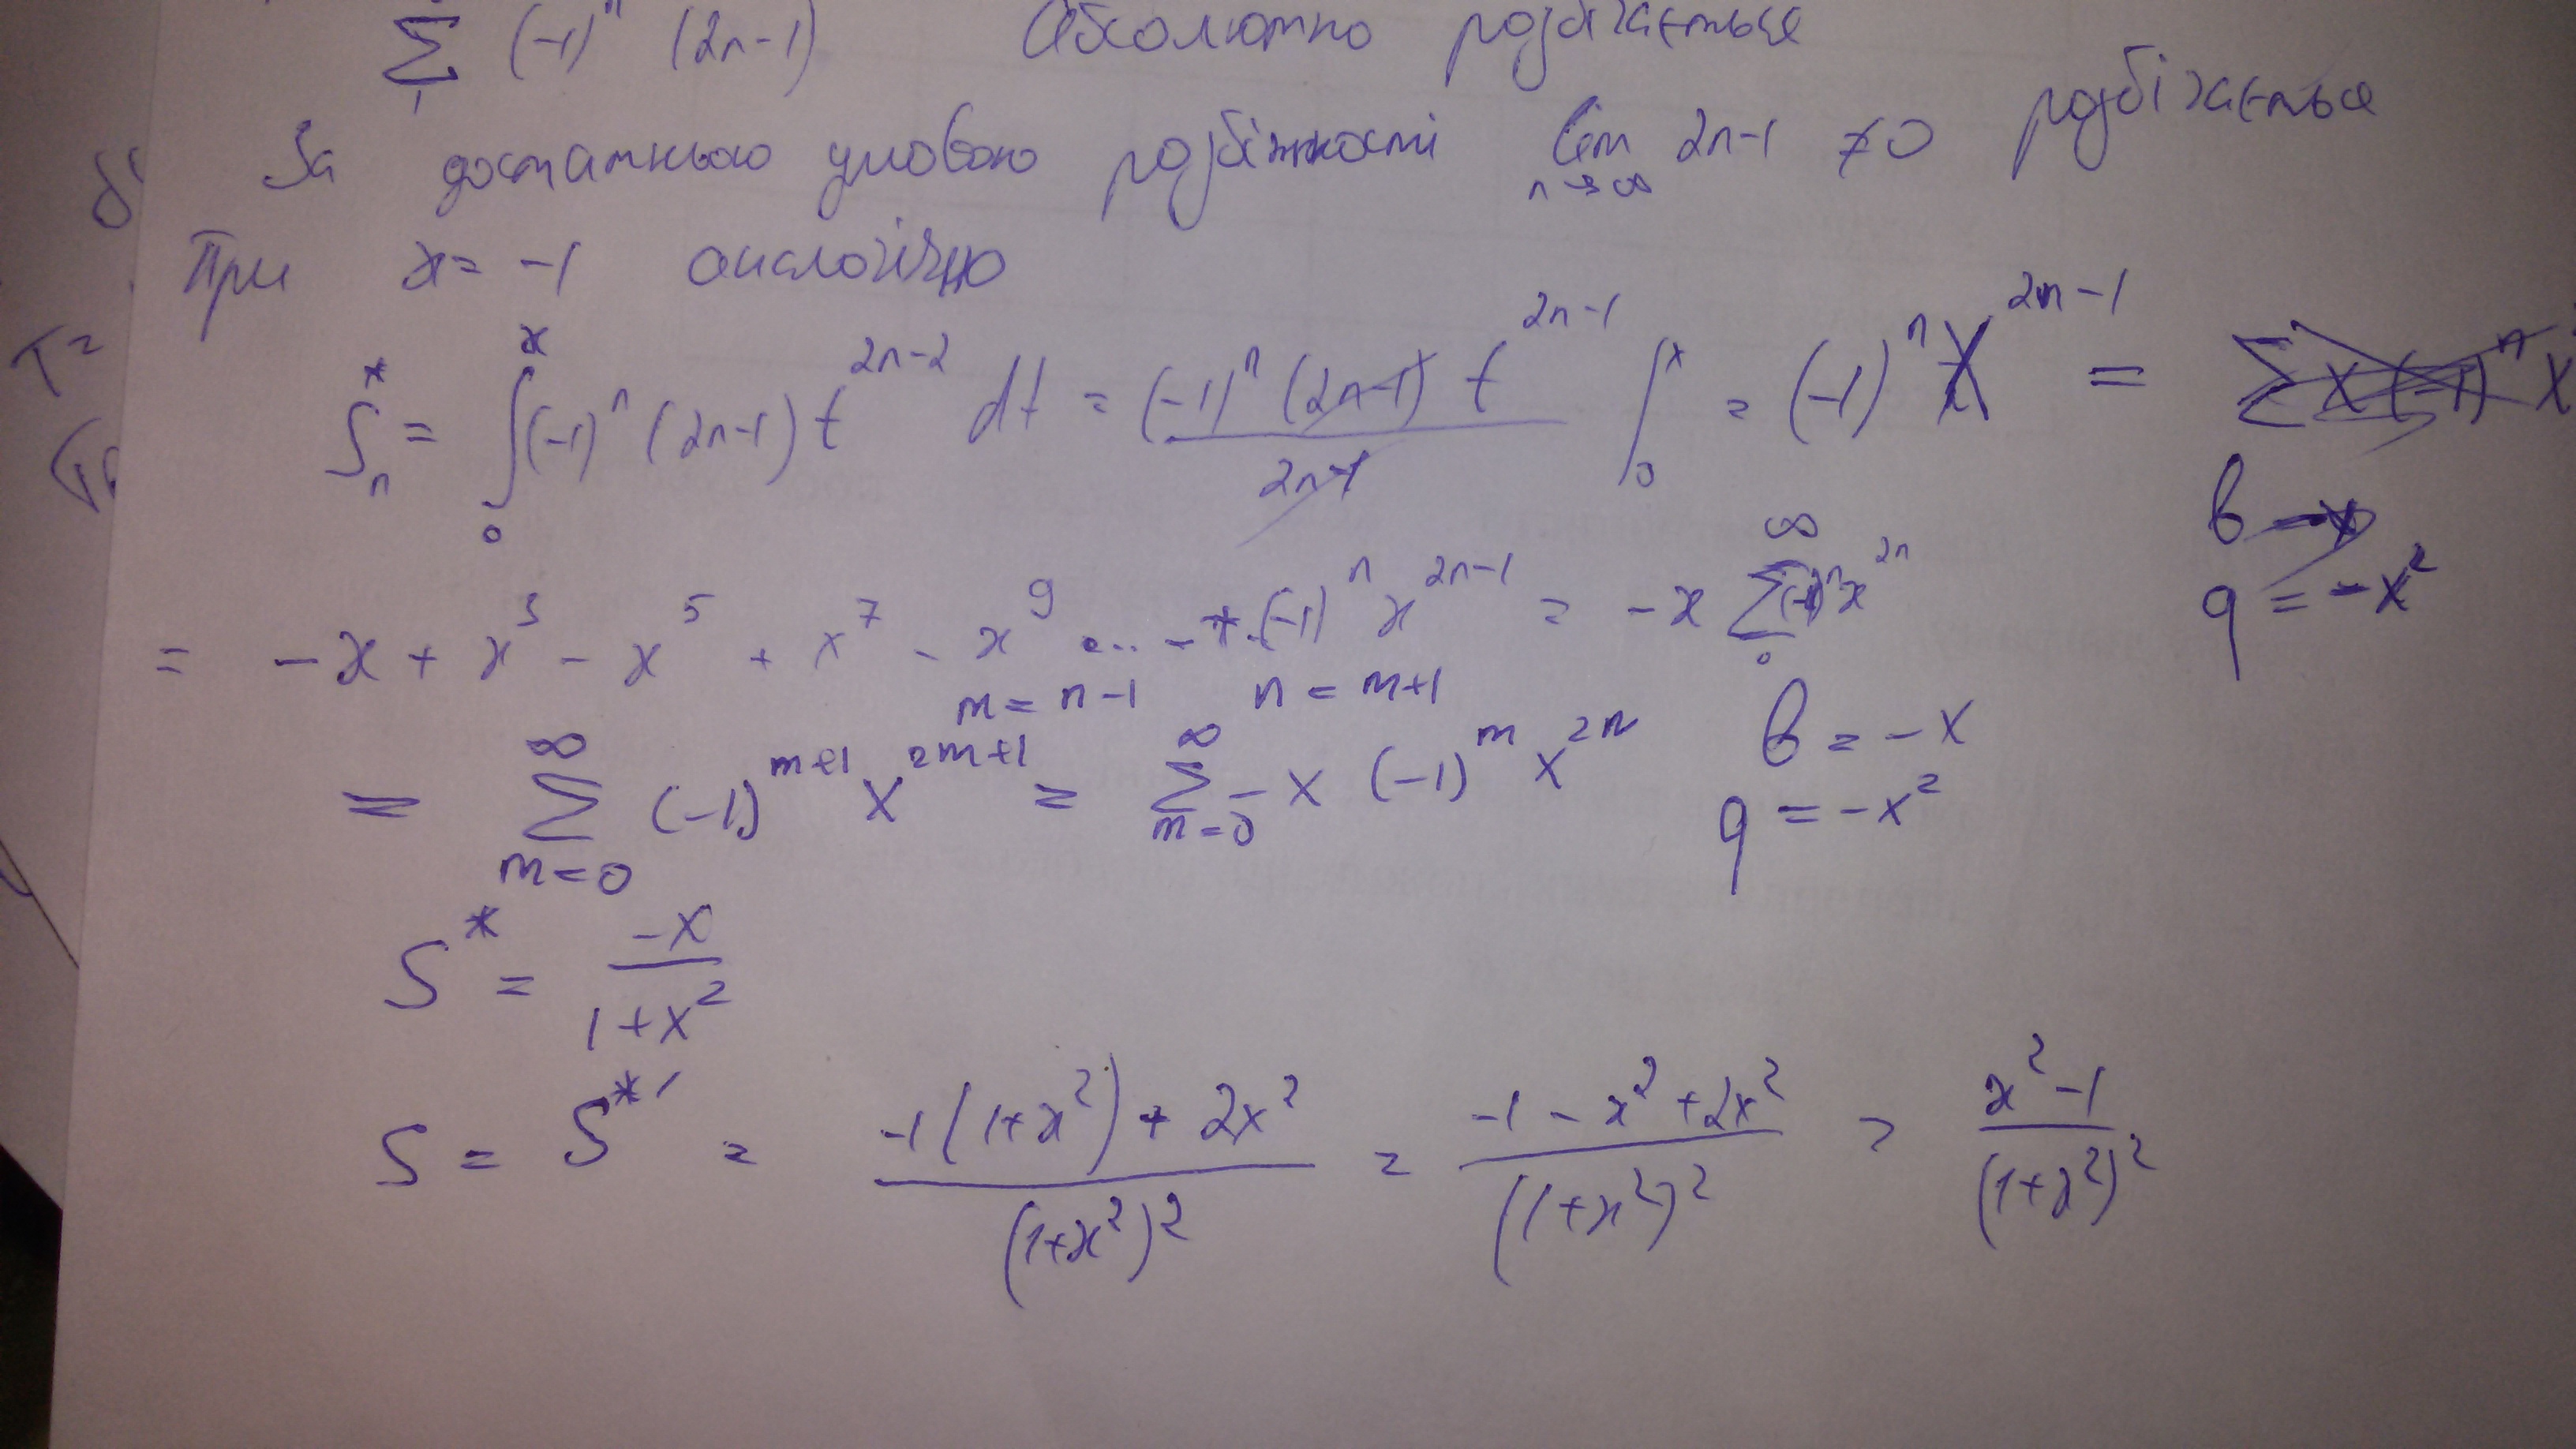 ∑ (-1)ⁿ (2n-1) Абсолютно розбігається
1
За достатньою умовою розбіжності lim 2n-1 ≠0 розбігається
n→∞
При x= -1 аналогічно
S*ₙ = ∫₀ˣ (-1)ⁿ (2n-1) t²ⁿ⁻² dt = (-1)ⁿ (2n-1) t²ⁿ⁻¹ / 2n-1 |₀ˣ = (-1)ⁿ X²ⁿ⁻¹ =
q = -x²
= -x + x³ - x⁵ + x⁷ - x⁹ ... - + (-1)ⁿ x²ⁿ⁻¹ = -x ∑₀^∞ (-1)ⁿ x²ⁿ
m = n-1 n = m+1
= ∑_{m=0}^∞ (-1)ᵐ⁺¹ X²ᵐ⁺¹ = ∑_{m=0}^∞ -x (-1)ᵐ X²ᵐ b = -x
q = -x²
S* = -x / 1+x²
S = S*′ = -1(1+x²) + 2x² / (1+x²)² = -1 - x² + 2x² / (1+x²)² = x² - 1 / (1+x²)²